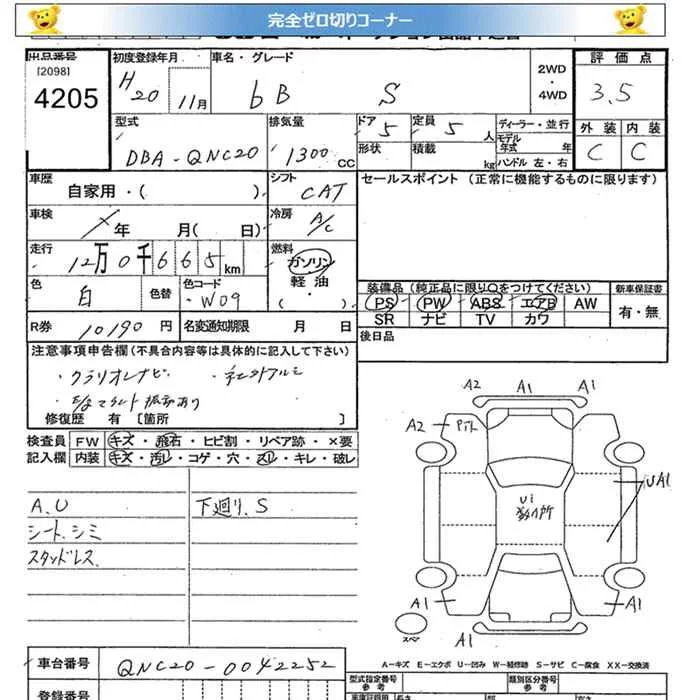 完全ゼロ切りコーナー
出品番号 初度登録年月 車名・グレード 2WD・4WD 評価点
[2098] 4205 H20 11月 bB S 3.5
型式 排気量 ドア 5 定員 5人 ディーラー・並行 外装 内装
DBA-QNC20 1300CC 形状 積載 kg モデル年式 年 ハンドル 左・右 C C
車歴 自家用・( ) シフト CAT セールスポイント (正常に機能するものに限ります)
車検 年 月( 日) 冷房 A/C
走行 12万0千665km 燃料 ガソリン
色 白 色替 色コード W09 軽油 ・( )
装備品(純正品に限り○をつけてください) 新車保証書
PS PW ABS エアB AW 有・無
SR ナビ TV カワ
R券 10190円 名変通知期限 月 日 後日品
注意事項申告欄(不具合内容等は具体的に記入して下さい)
・クラリオンナビ ・社外アルミ
修復歴 有 [箇所 ]
検査員 FW キズ・飛石・ヒビ割・リペア跡・×要
記入欄 内装 キズ・汚レ・コゲ・穴・スレ・キレ・破レ
A.U 下廻り.S
シート.シミ
スタッドレス.
A2 A1 A1
A2
U1
UA1
A1 A1
スペア A1
A-キズ E-エクボ U-凹み W-補修跡 S-サビ C-腐食 XX-交換済
車台番号 QNC20-0042252 型式指定番号 参考 類別区分番号 参考
登録番号